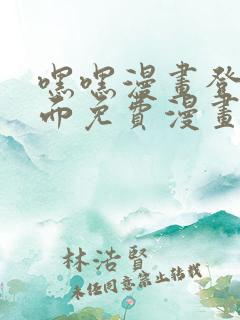 嘿嘿漫畫登
頁免費漫畫
林浩賢
未經同意禁止轉載